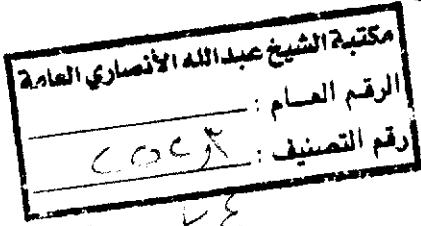 مكتبة الشيخ عبدالله الأنصاري العامة
الرقم العام :
رقم التصنيف :